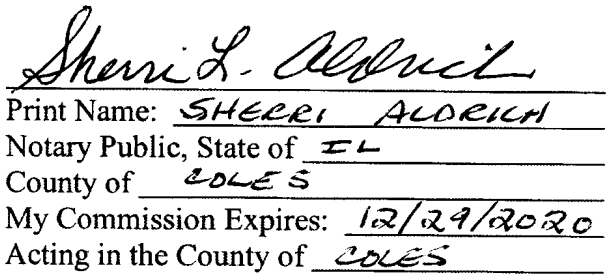 Sherri L. Aldrich
Print Name: SHERRI ALDRICH
Notary Public, State of IL
County of COLES
My Commission Expires: 12/29/2020
Acting in the County of COLES